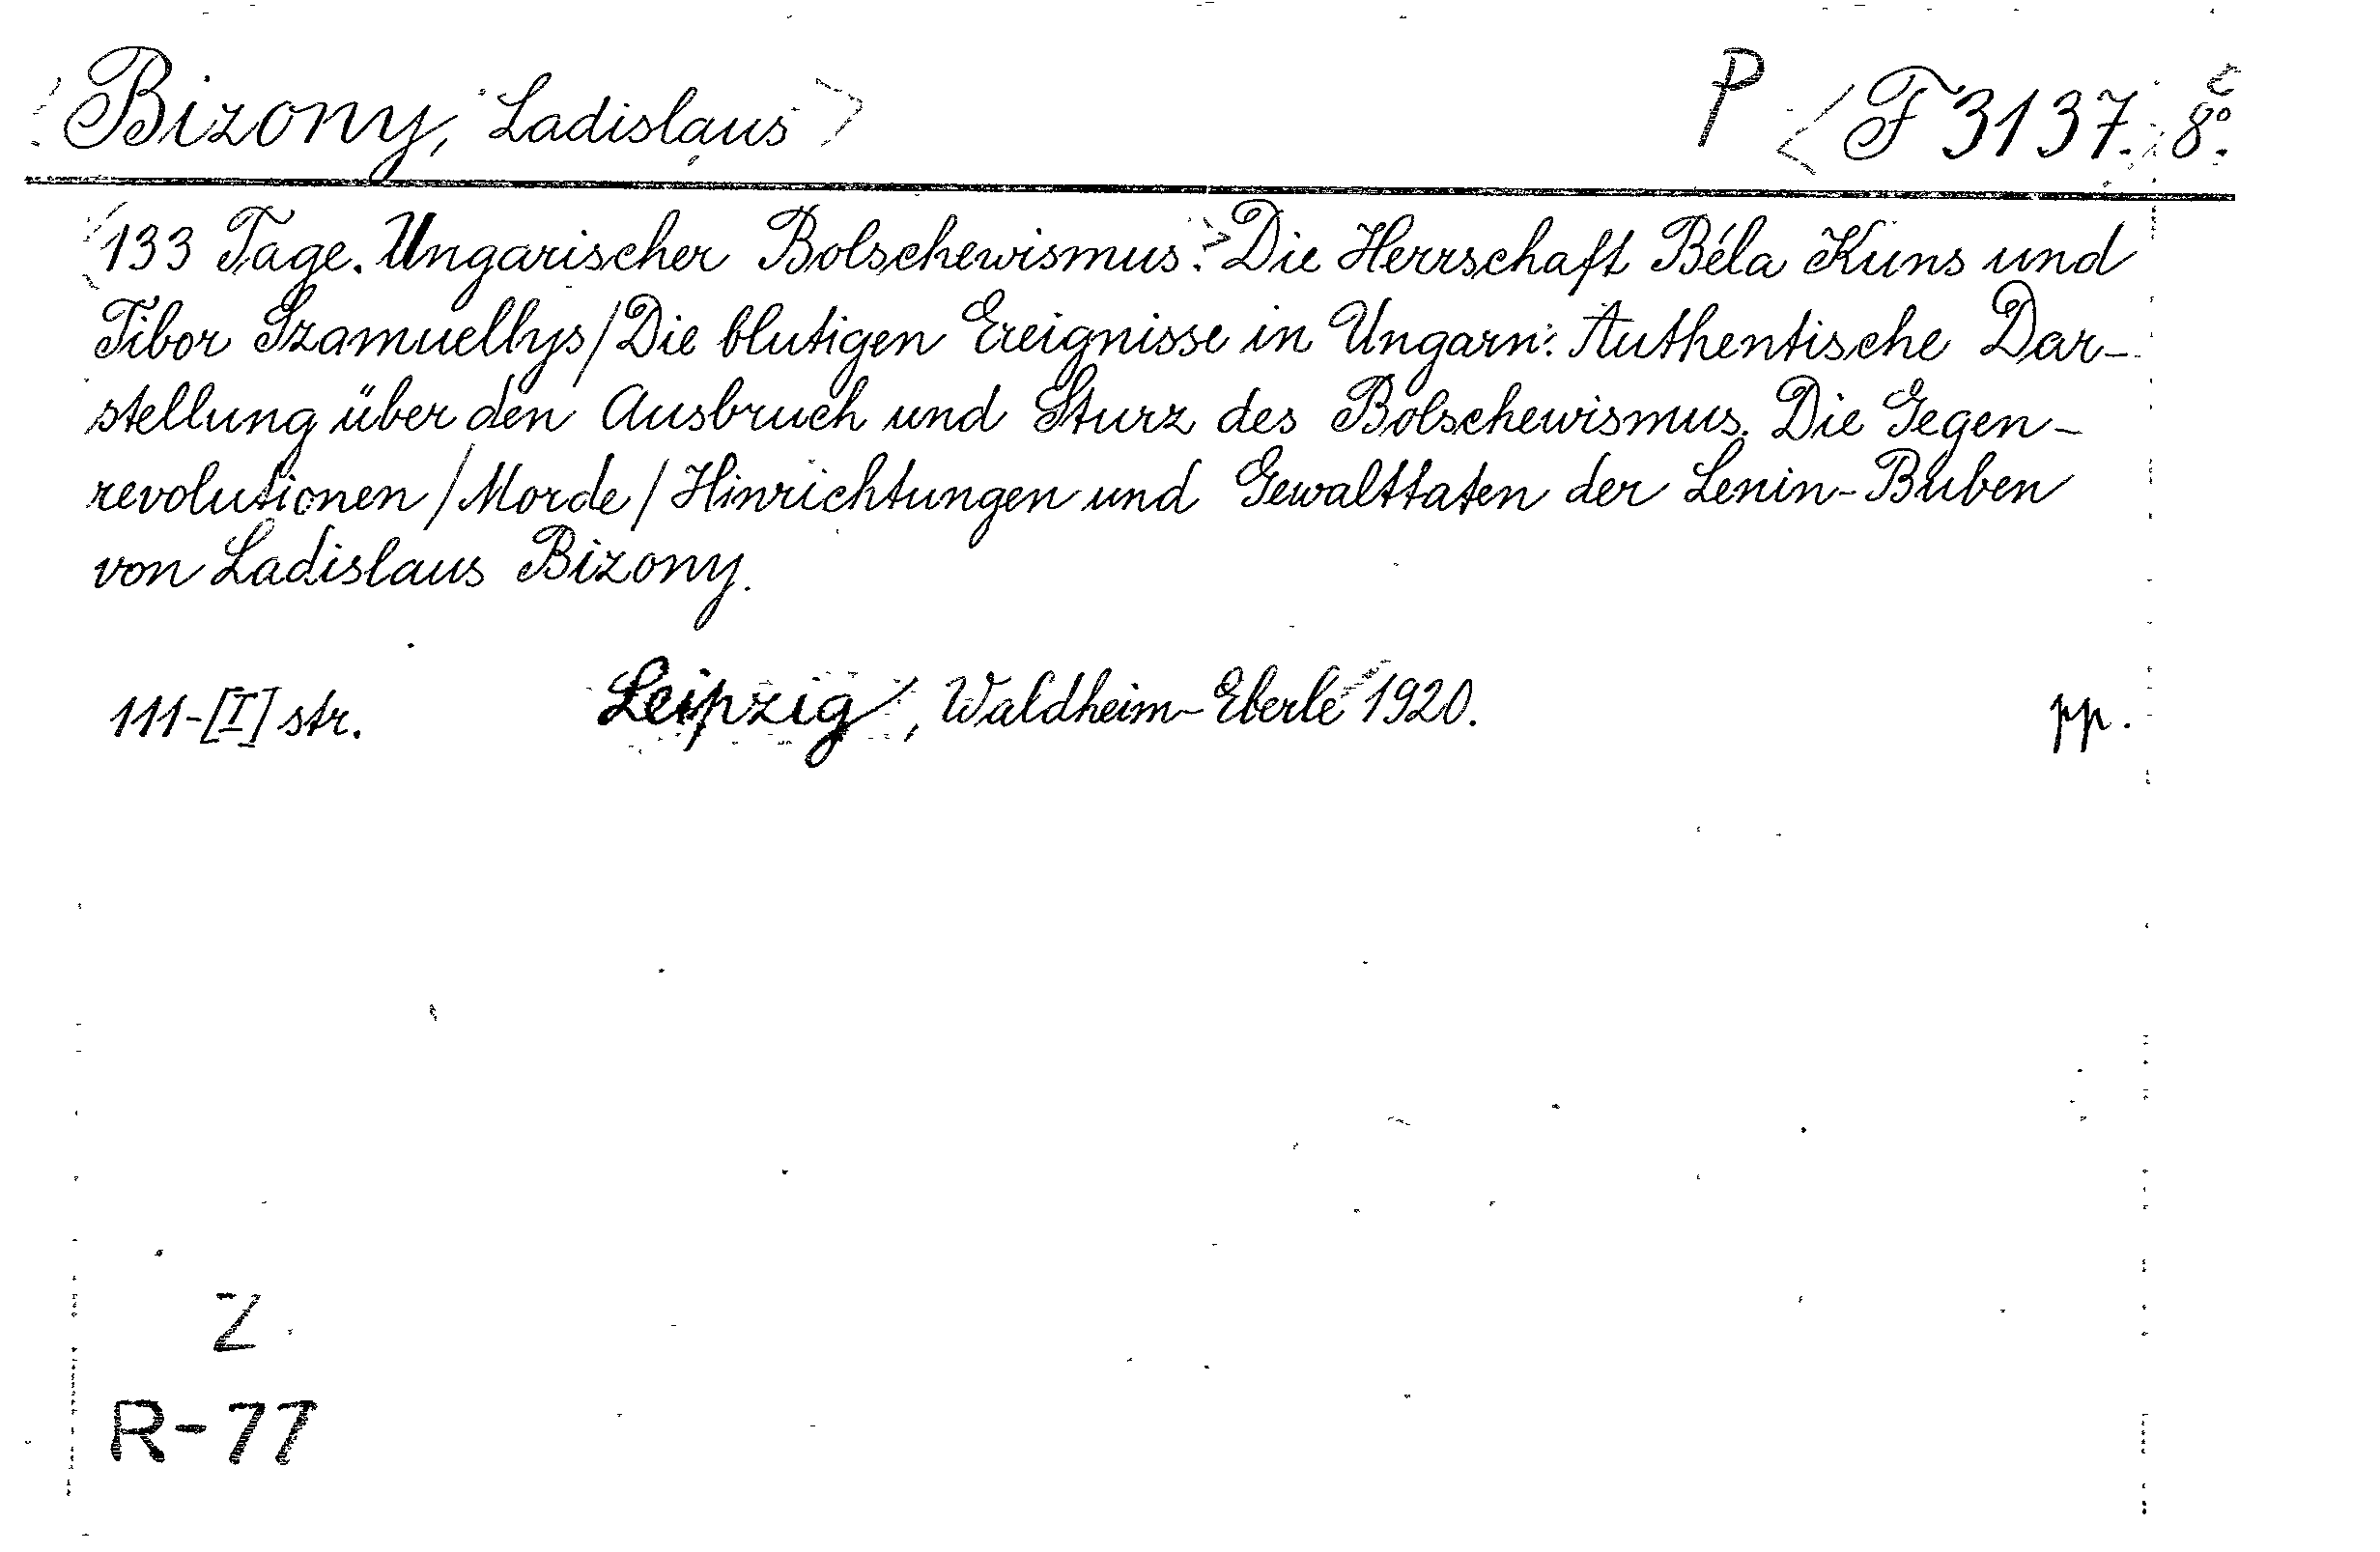 Bizony, Ladislaus P F 3137. 8º.
133 Tage. Ungarischer Bolschewismus. Die Herrschaft Béla Kuns und
Tibor Szamuellys/Die blutigen Ereignisse in Ungarn. Authentische Dar-
stellung über den Ausbruch und Sturz des Bolschewismus. Die Gegen-
revolutionen/Morde/Hinrichtungen und Gewalttaten der Lenin-Buben
von Ladislaus Bizony.
111-[I] str. Leipzig, Waldheim-Eberle 1920. pp.
Z
R-77